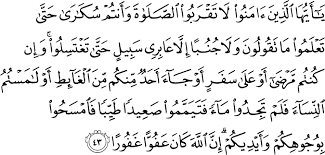 يَٰٓأَيُّهَا ٱلَّذِينَ ءَامَنُوا۟ لَا تَقْرَبُوا۟ ٱلصَّلَوٰةَ وَأَنتُمْ سُكَٰرَىٰ حَتَّىٰ
تَعْلَمُوا۟ مَا تَقُولُونَ وَلَا جُنُبًا إِلَّا عَابِرِى سَبِيلٍ حَتَّىٰ تَغْتَسِلُوا۟ ۚ وَإِن
كُنتُم مَّرْضَىٰٓ أَوْ عَلَىٰ سَفَرٍ أَوْ جَآءَ أَحَدٌ مِّنكُم مِّنَ ٱلْغَآئِطِ أَوْ لَٰمَسْتُمُ
ٱلنِّسَآءَ فَلَمْ تَجِدُوا۟ مَآءً فَتَيَمَّمُوا۟ صَعِيدًا طَيِّبًا فَٱمْسَحُوا۟
بِوُجُوهِكُمْ وَأَيْدِيكُمْ ۗ إِنَّ ٱللَّهَ كَانَ عَفُوًّا غَفُورًا ٤٣